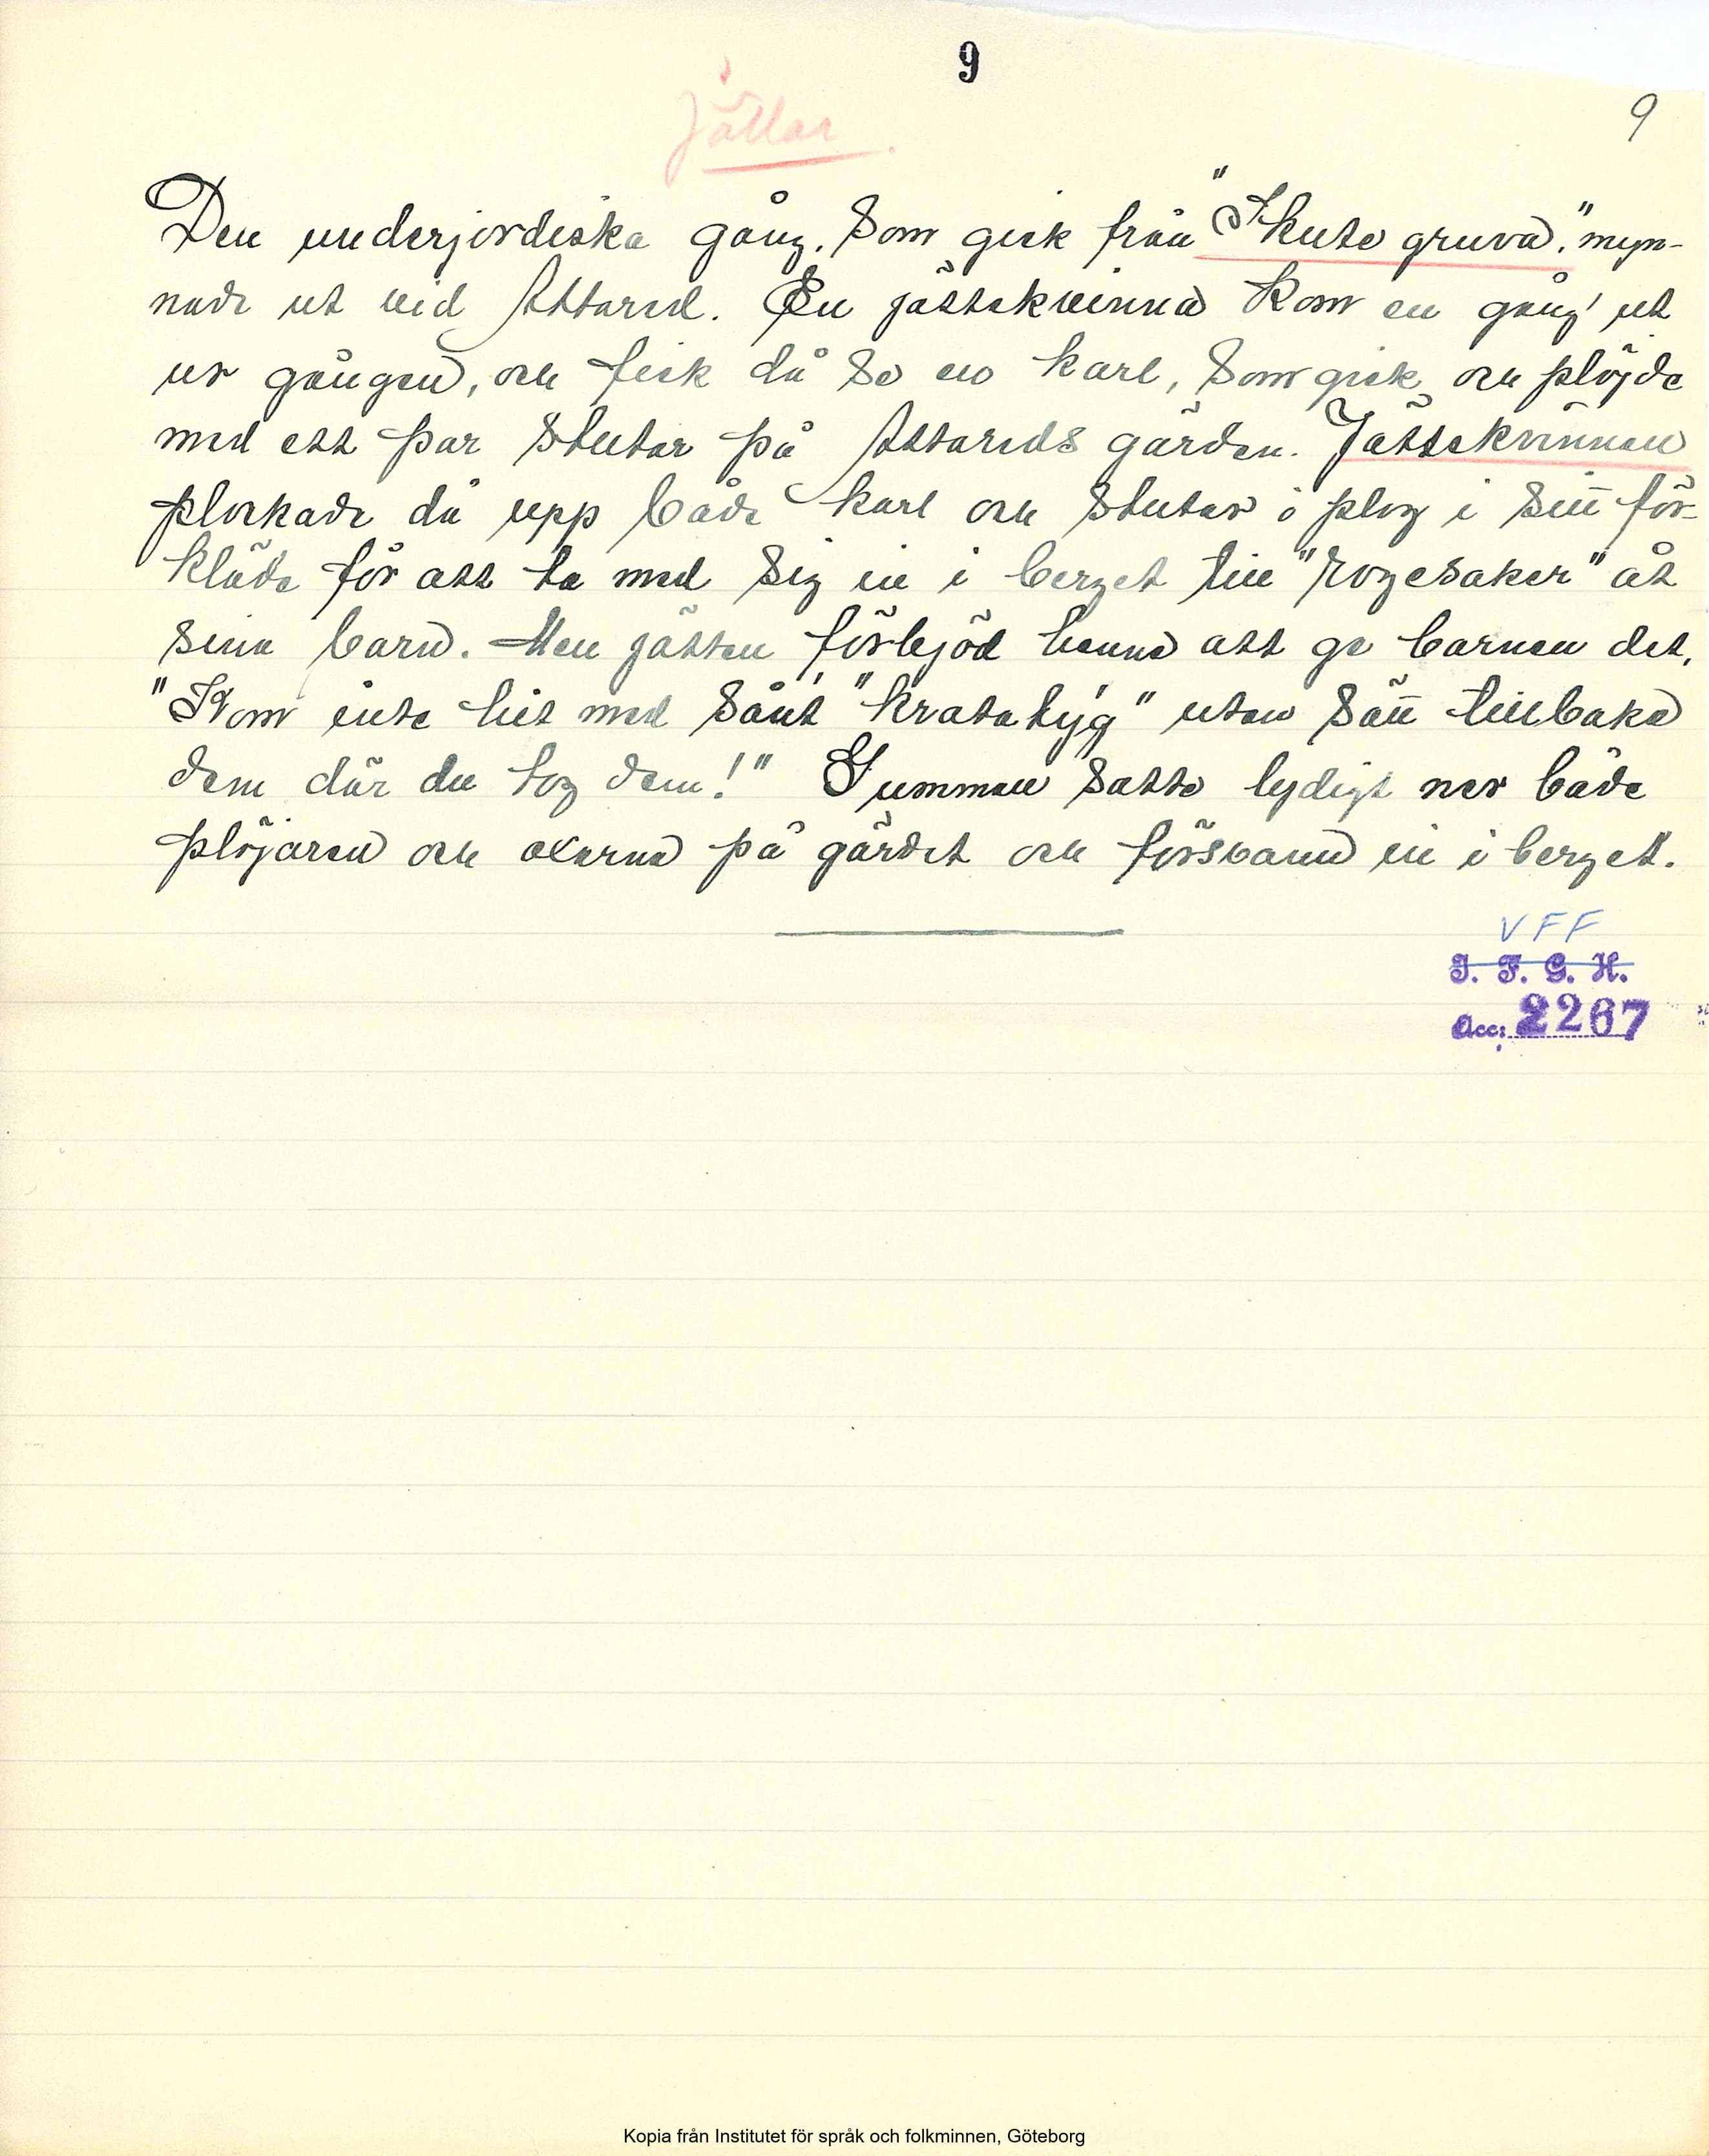 9
Jättar.
9
Den underjordiska gång, som gick från "Skute gruva," myn-
nade ut vid Attared. En jättekvinna kom en gång ut
ur gången, och fick då se en karl, som gick och plöjde
med ett par stutar på Attareds gården. Jättekvinnan
plockade då upp både karl och stutar o plog i sin̄ för-
kläde för att ta med sig in i berget till "rogesaker" åt
sina barn. Men jätten förbjöd henne att ge barnen det.
"Kom inte hit med sånt "kratatyg" utan sän̄ tillbaka
dem där du tog dem!" Gumman satte lydigt ner både
plöjaren och oxarna på gärdet och försvann in i berget.
VFF
I. F. G. H.
Acc: 2267
Kopia från Institutet för språk och folkminnen, Göteborg